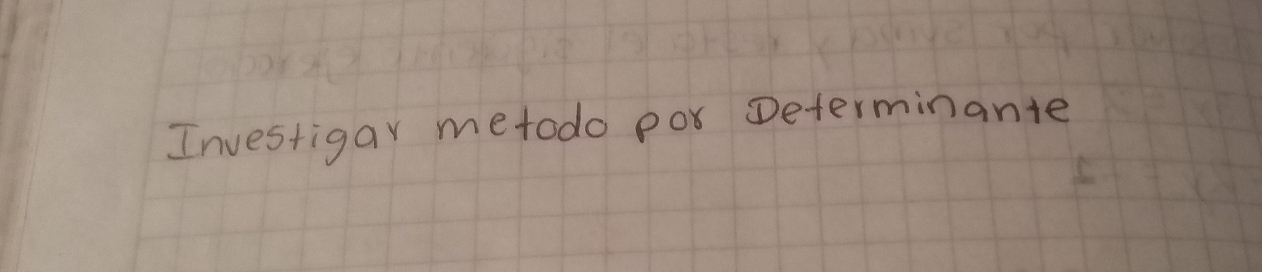 Investigar metodo por Determinante